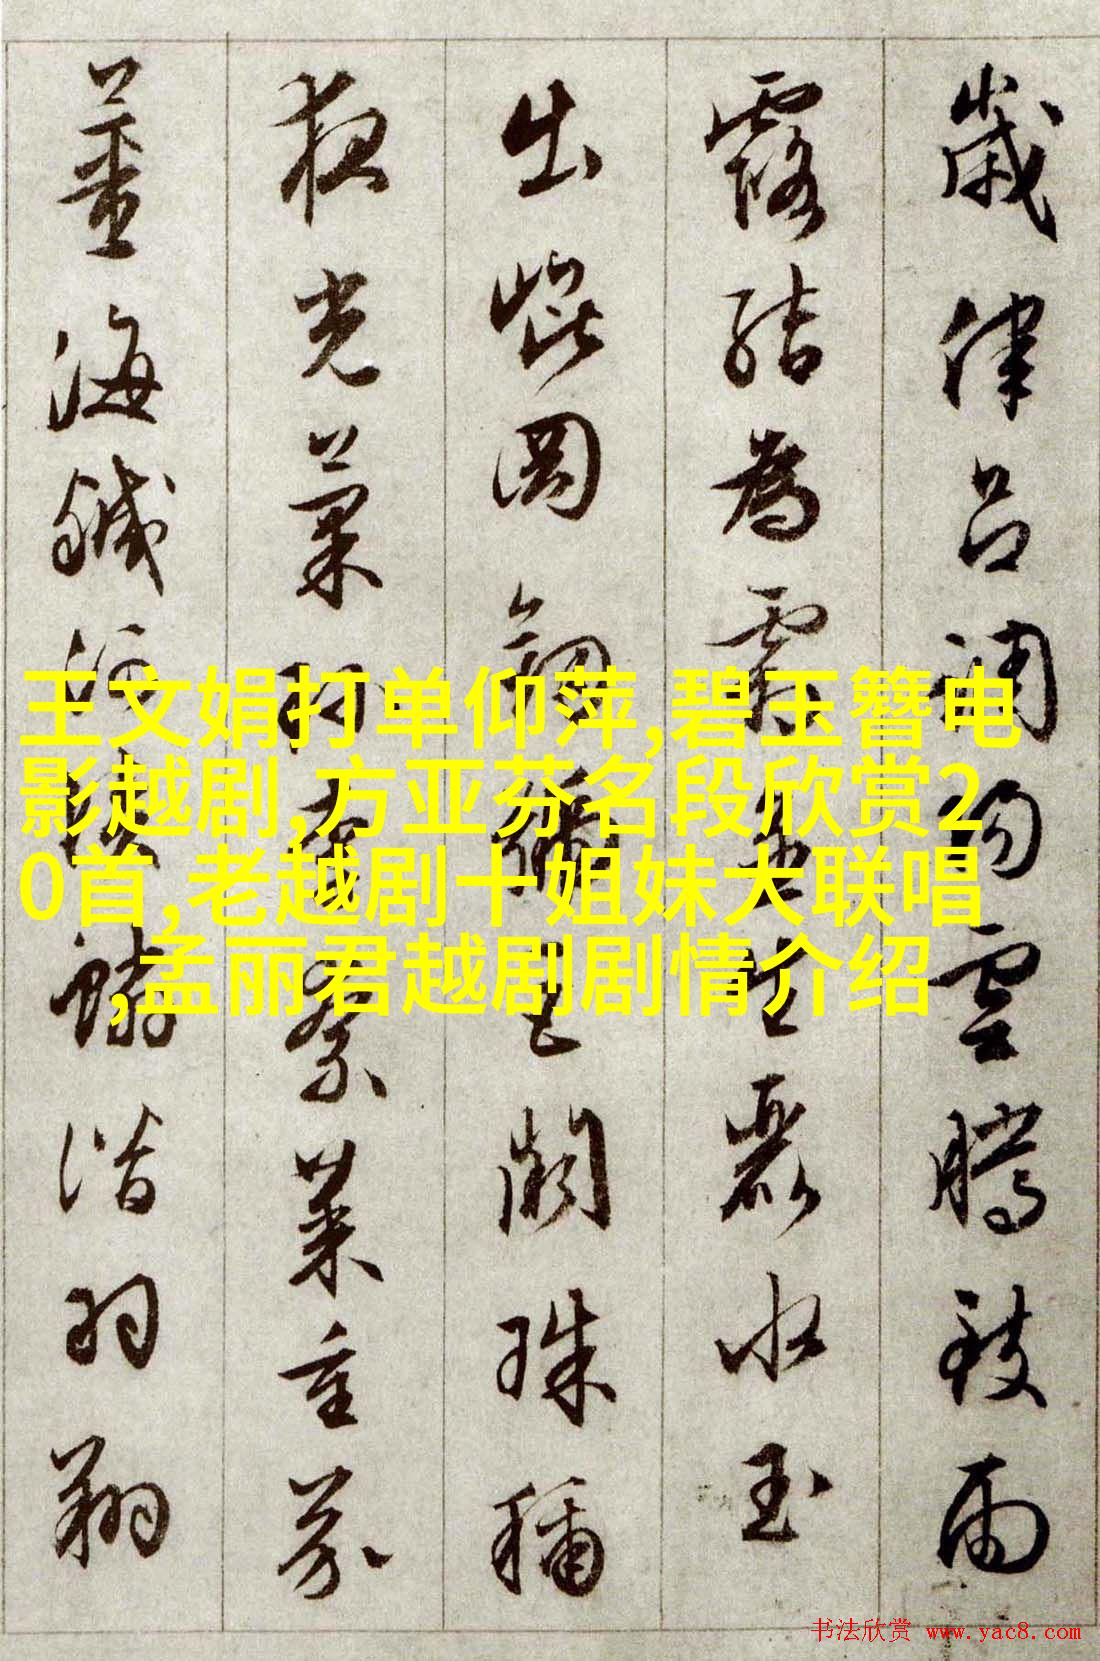 歲律呂調陽雲騰致雨
露結為霜金生麗水玉
出崐岡劒號巨闕珠稱
夜光菓珍李柰菜重芥
薑海鹹河淡鱗潛羽翔
王文娟打单仰萍,碧玉簪电
影越剧,方亚芬名段欣赏2
0首,老越剧十姐妹大联唱
,孟丽君越剧剧情介绍
书法欣赏 www.yac8.com